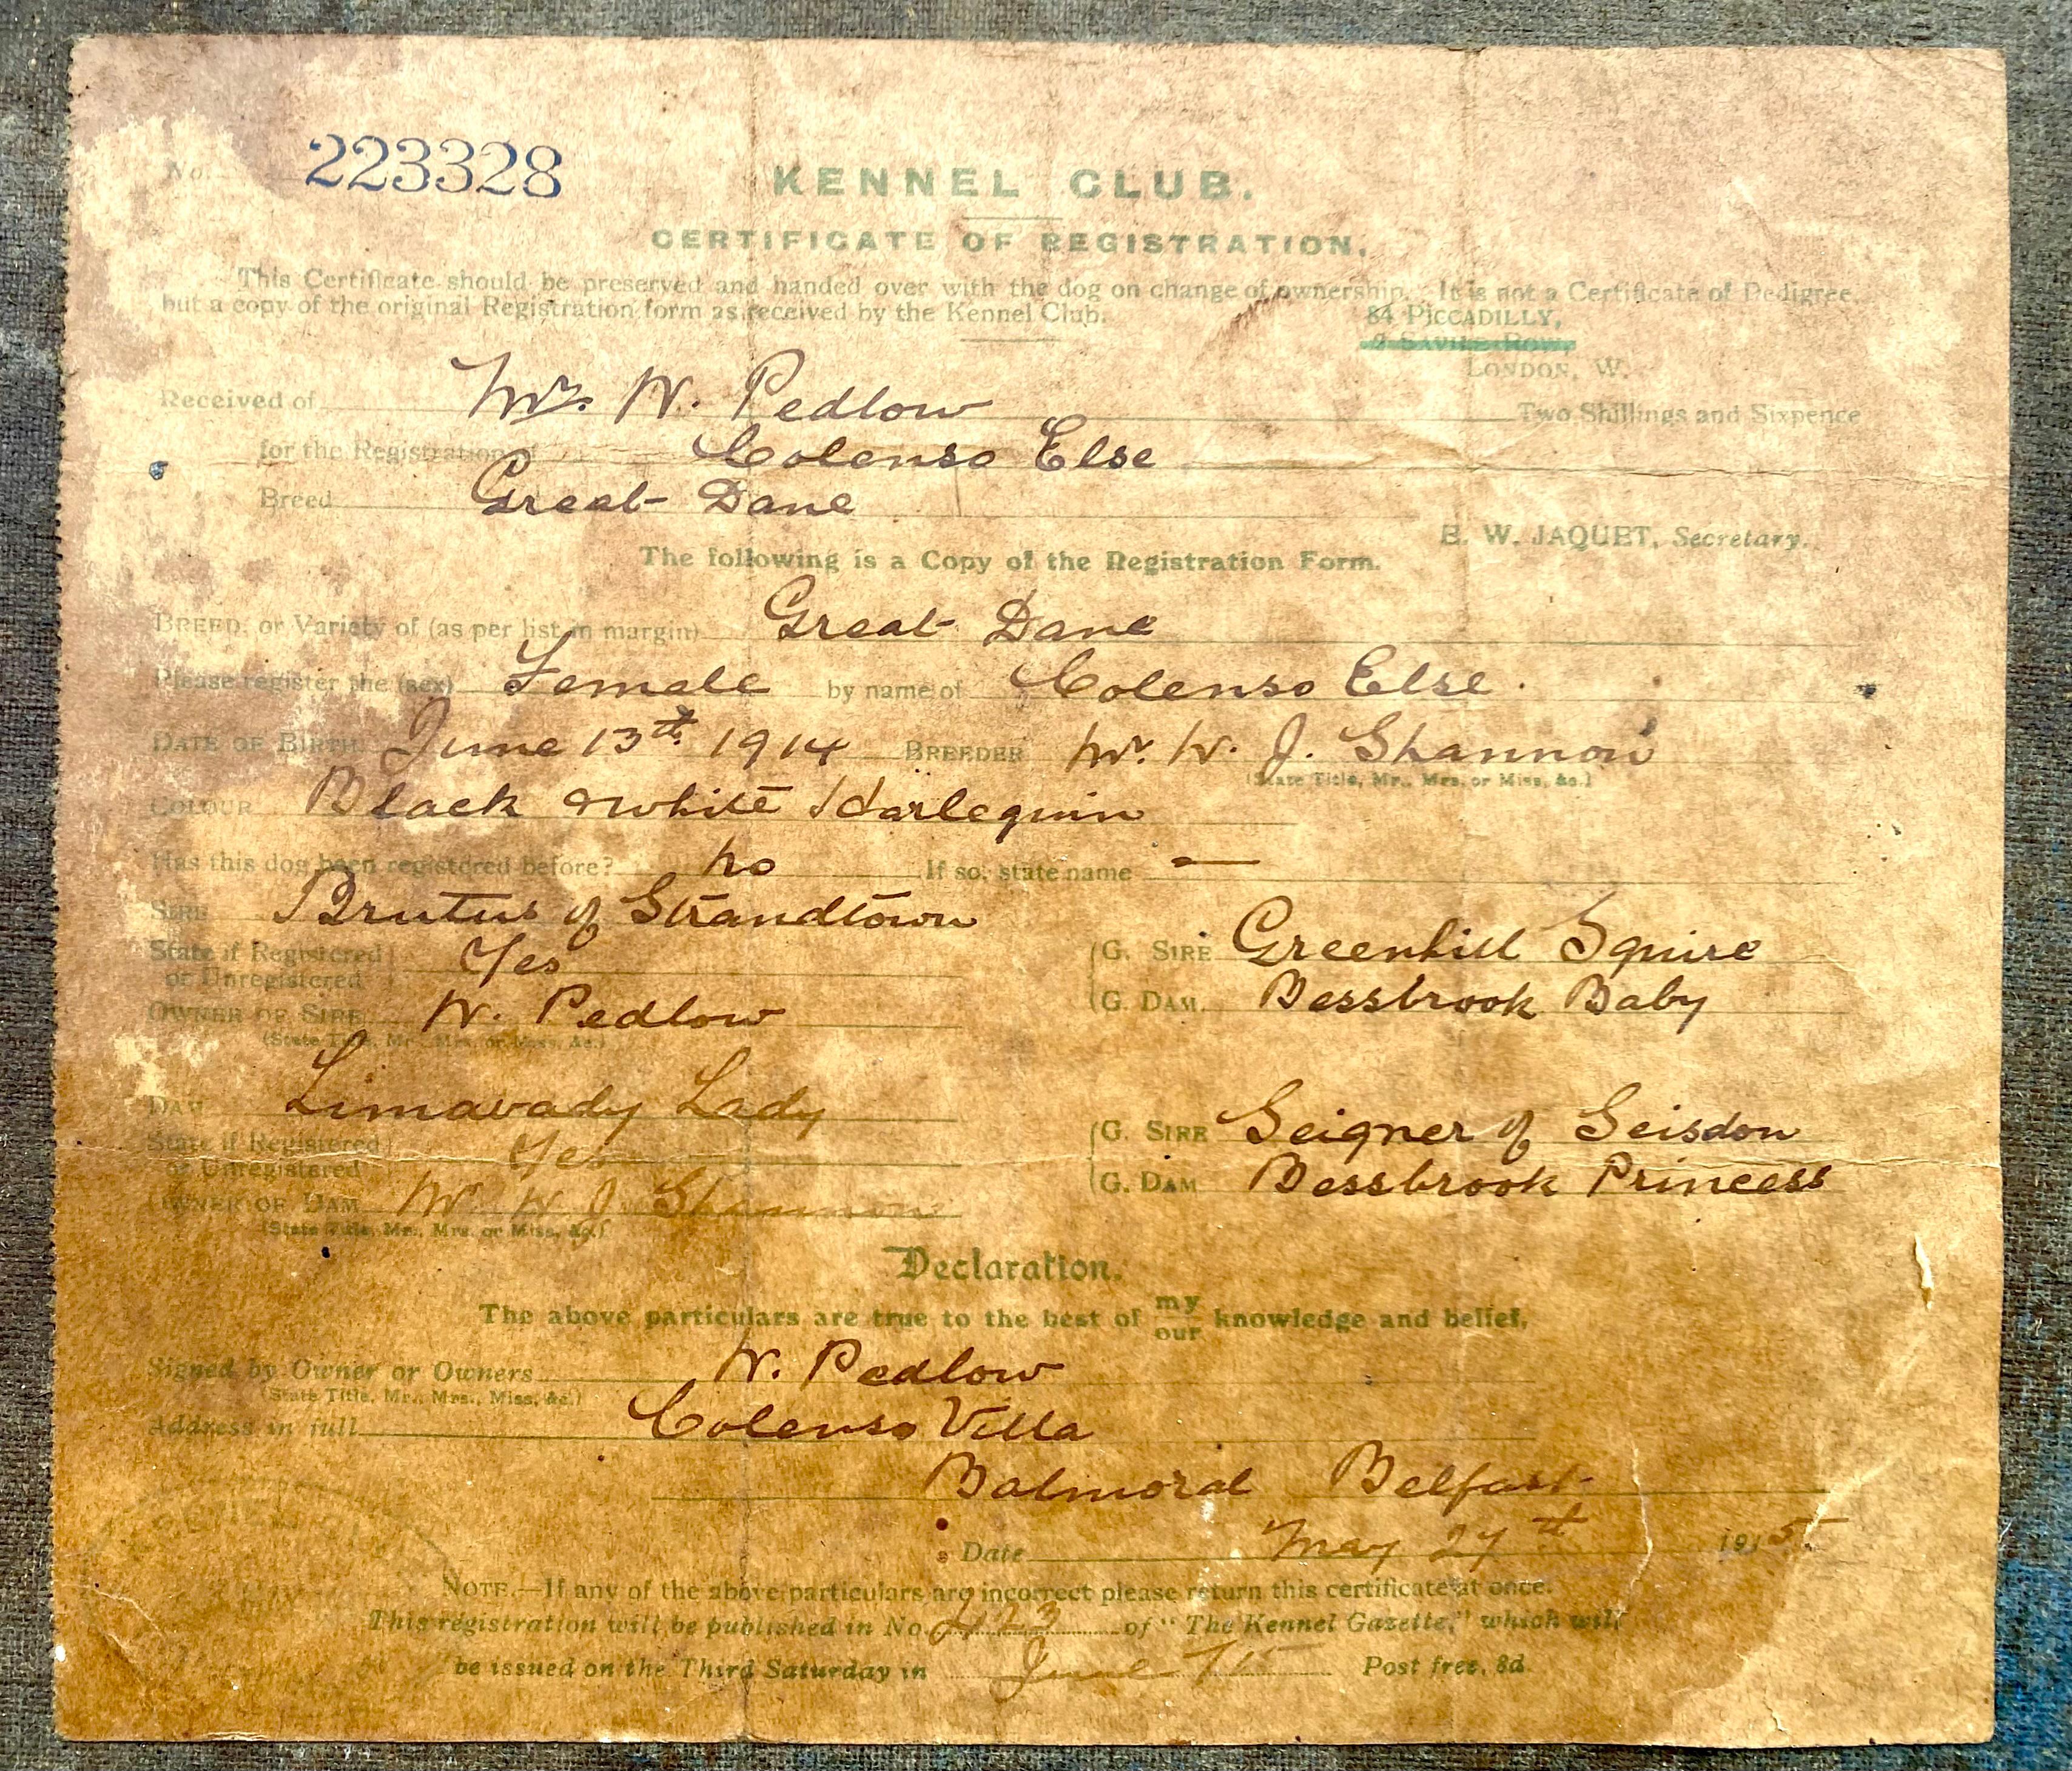 No. 223328
KENNEL CLUB.
CERTIFICATE OF REGISTRATION.
This Certificate should be preserved and handed over with the dog on change of ownership. It is not a Certificate of Pedigree,
but a copy of the original Registration form as received by the Kennel Club.
84 PICCADILLY,
2 SAVILE ROW,
LONDON, W.
Received of Mr. W. Pedlow Two Shillings and Sixpence
for the Registration of Colenso Else
Breed Great Dane
E. W. JAQUET, Secretary.
The following is a Copy of the Registration Form.
BREED, or Variety of (as per list in margin) Great Dane
Please register the (sex) Female by name of Colenso Else.
DATE OF BIRTH June 13th 1914 BREEDER Mr. W. J. Shannon
(State Title, Mr., Mrs. or Miss, &c.)
COLOUR Black & white Harlequin
Has this dog been registered before? no If so, state name —
SIRE Brutus of Strandtown
State if Registered or Unregistered Yes
G. SIRE Greenhill Squire
OWNER OF SIRE W. Pedlow
(State Title, Mr., Mrs. or Miss, &c.)
G. DAM Bessbrook Baby
DAM Limavady Lady
State if Registered or Unregistered Yes
G. SIRE Seigner of Seisdon
OWNER OF DAM Mr. W J Shannon
(State Title, Mr., Mrs. or Miss, &c.)
G. DAM Bessbrook Princess
Declaration.
The above particulars are true to the best of my/our knowledge and belief,
Signed by Owner or Owners W. Pedlow
(State Title, Mr., Mrs., Miss, &c.)
Address in full Colenso Villa
Balmoral Belfast
Date May 27th 1915
NOTE.—If any of the above particulars are incorrect please return this certificate at once.
This registration will be published in No. 423 of "The Kennel Gazette," which will
be issued on the Third Saturday in June /15 Post free, 8d.